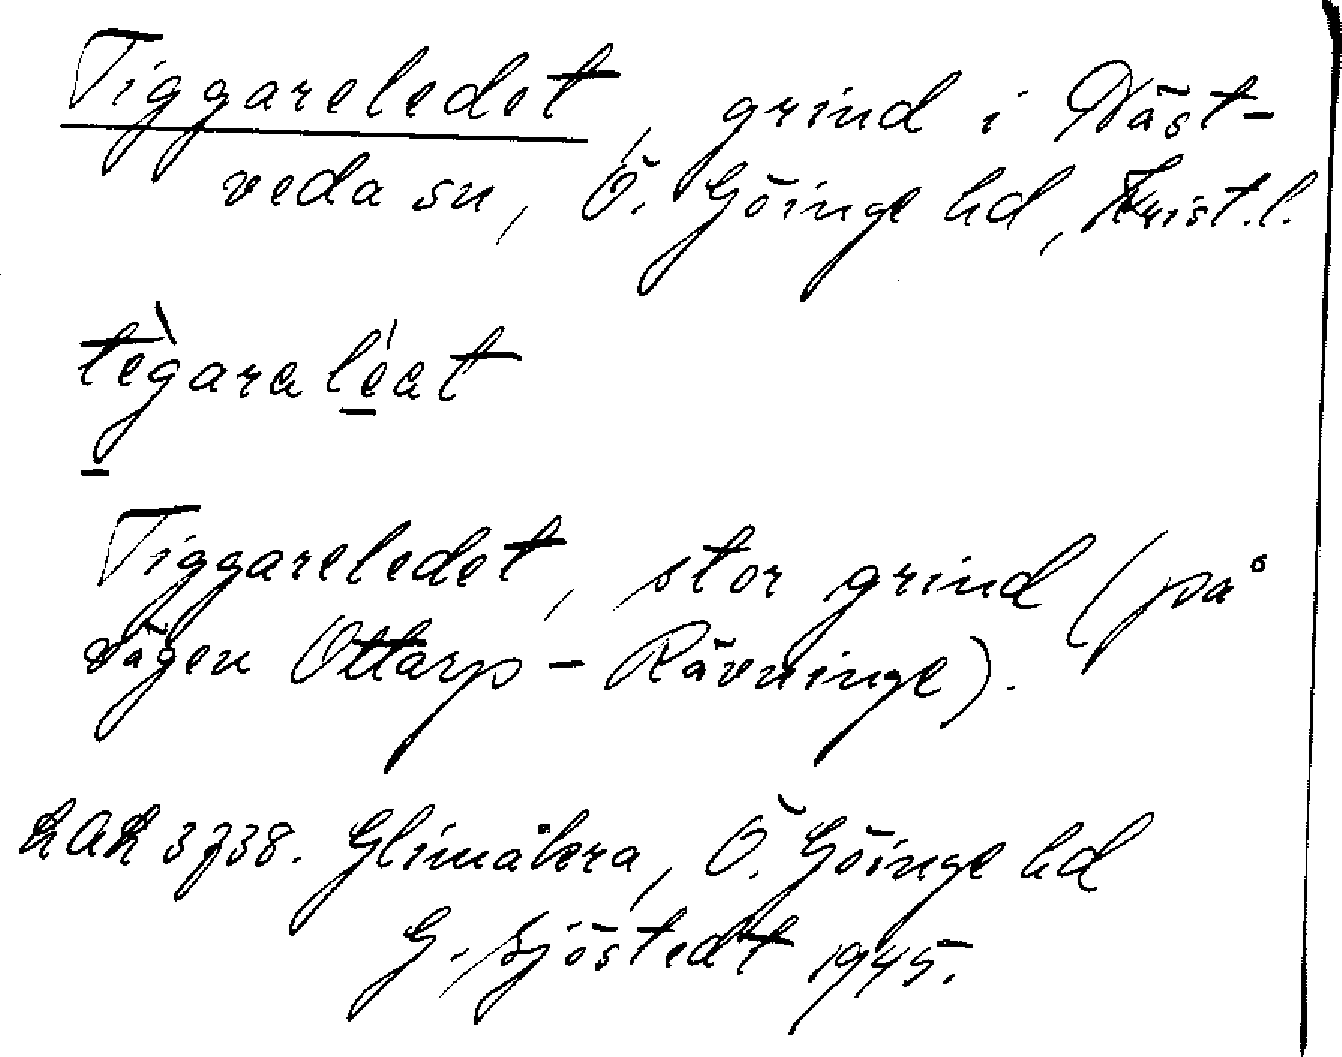 Tiggareledet, grind i Näst-
veda sn, Ö. Göinge hd, Krist.l.
tègaraléat
Tiggareledet, stor grind (på
vägen Ottarp - Rävninge).
LAL 3738. Glimåkra, Ö. Göinge hd
G. Sjöstedt 1945.